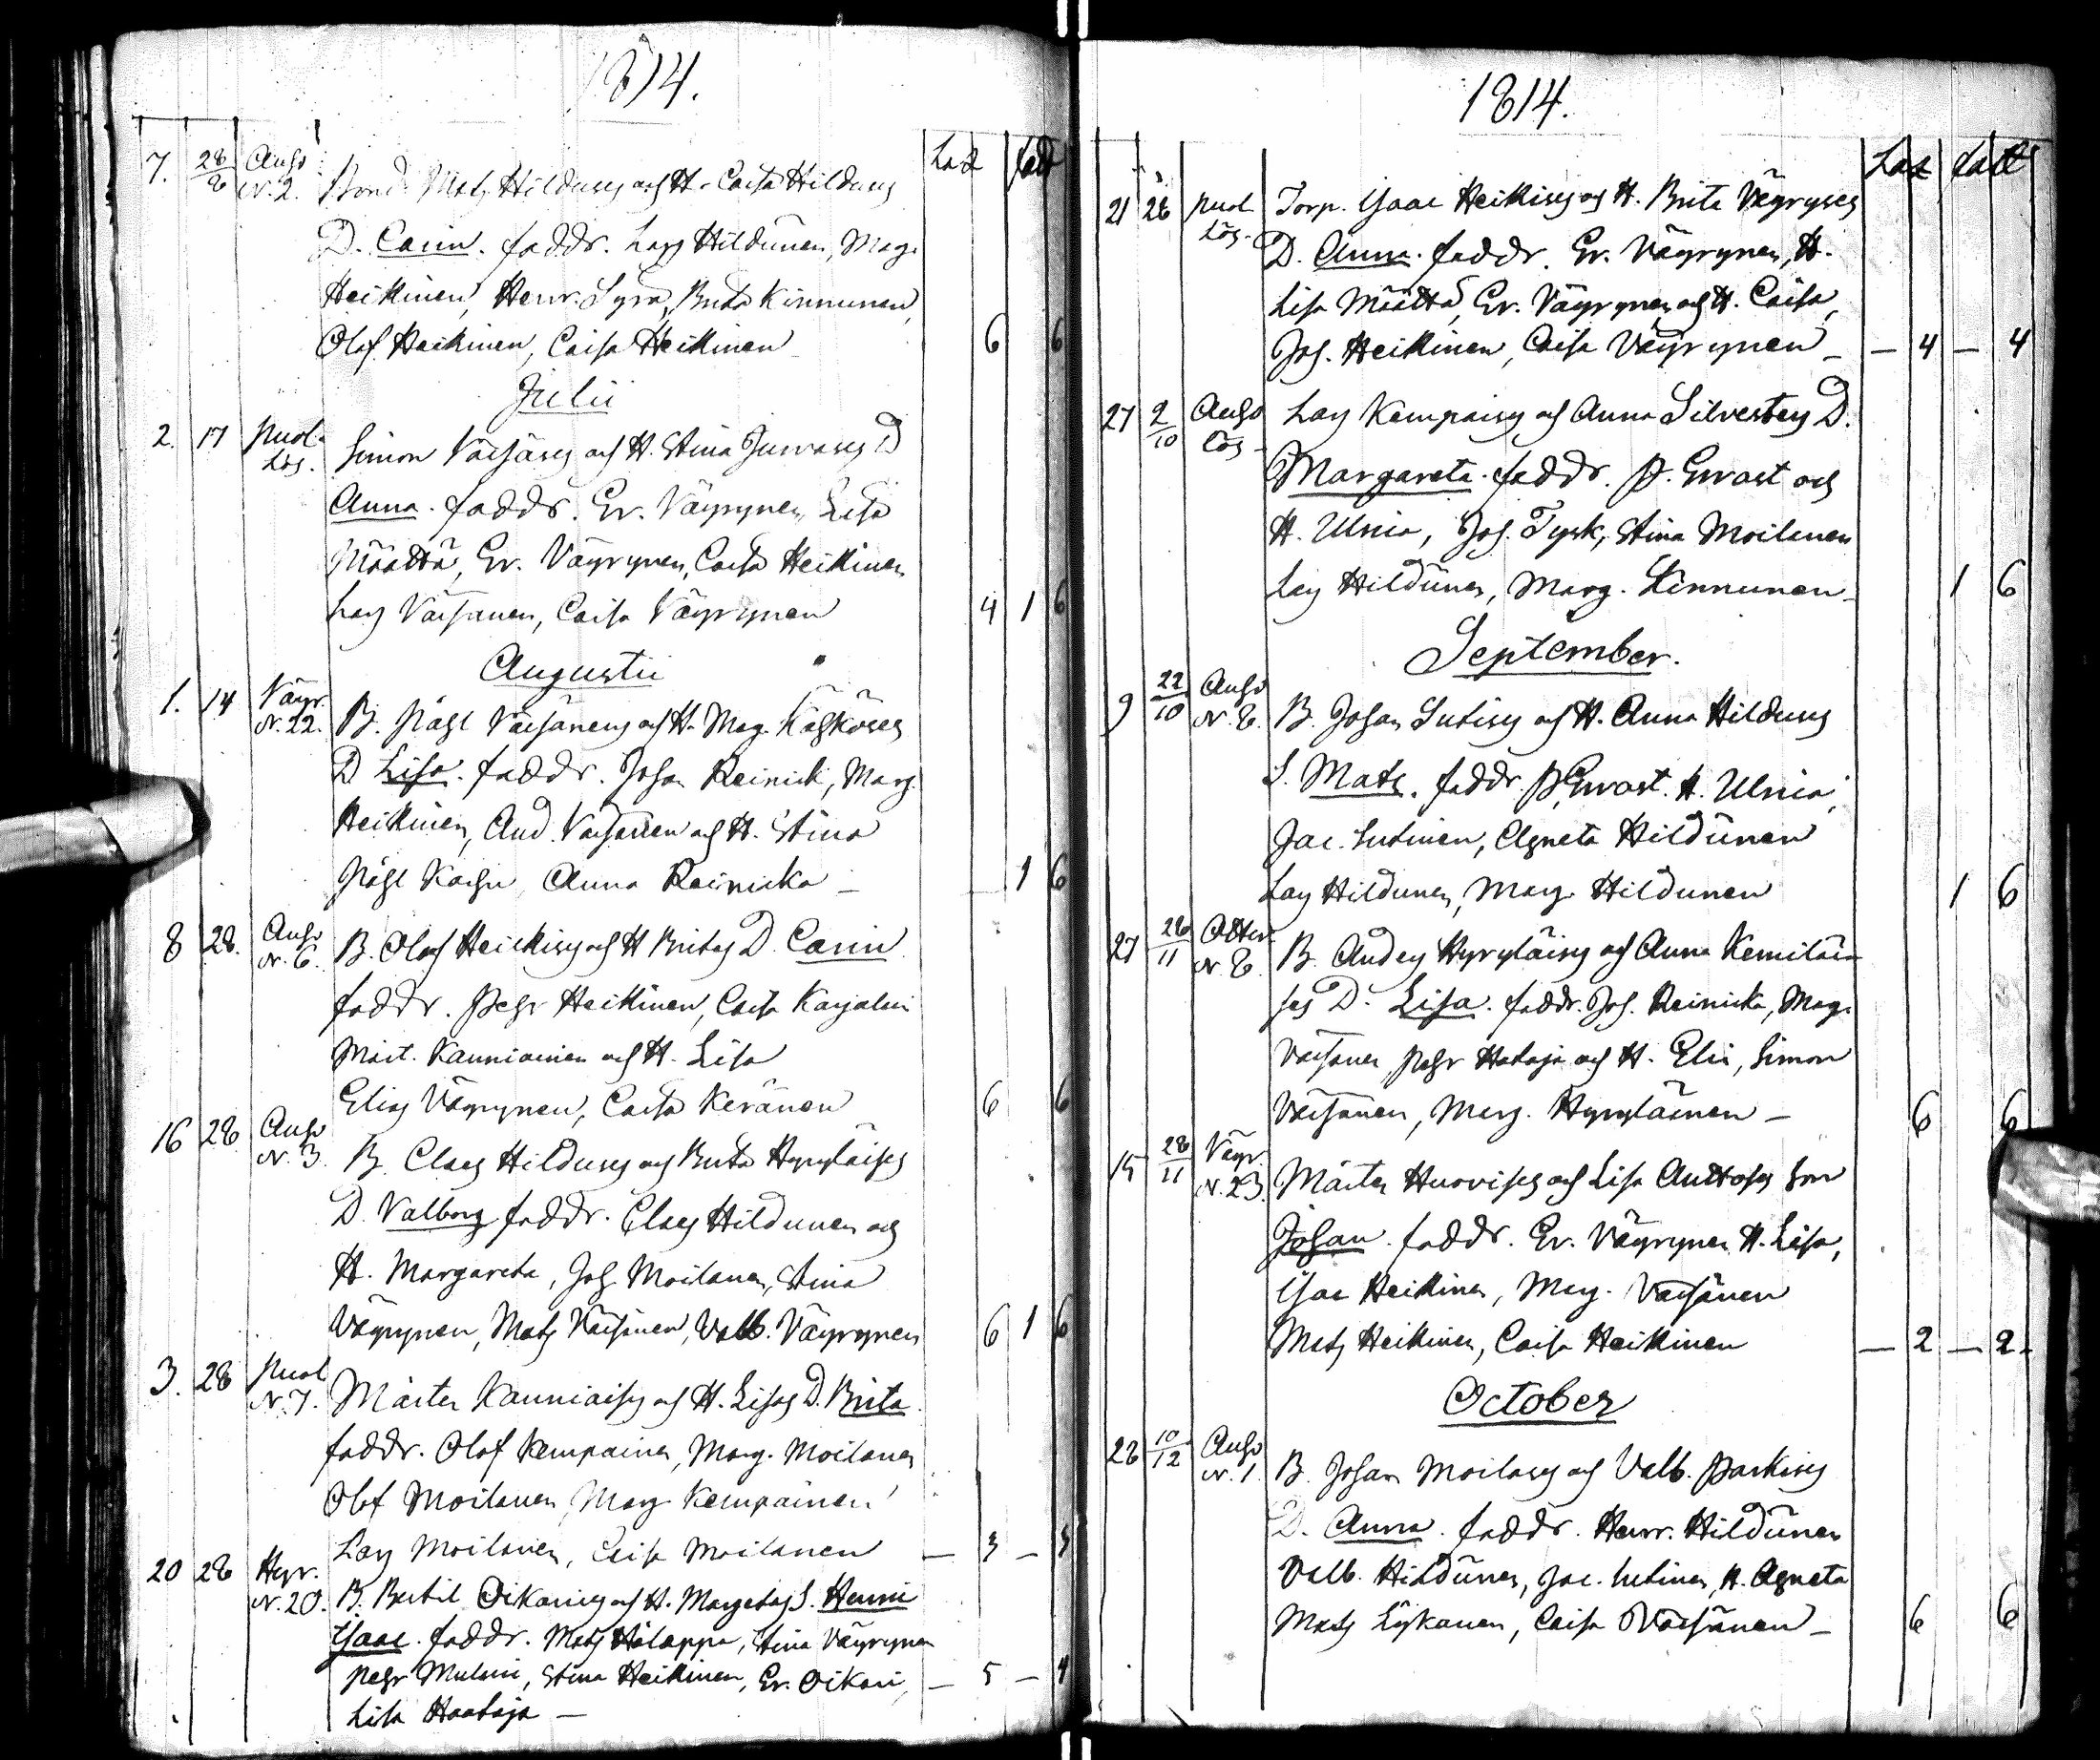 1814.
Las fatt
7. 28/8 Anso N. 2. Bond. Mats Hilduns och H. Caisa Hilduns
D. Carin. faddr. Lars Hildunen, Marg.
Heikinen, Henr. Syra, Brita Kinnunen,
Olof Heikinen, Caisa Heikinen 6 6
Julii
2. 17 Puol. Lös. Simon Väisäns och H. Stina Juvas D
Anna. faddr. Er. Väyrynen, Lisa
Määttä, Er. Väyrynen, Caisa Heikinen
Lars Väisänen, Caisa Väyrynen 4 1 6
Augustii
1. 14 Väyr. N. 22. B. Påhl Väisänens och H. Mag. Kähkönes
D Lisa. faddr. Johan Reinick, Marg.
Heikinen, And. Väisänen och H. Stina
Påhl Karhu, Anna Reinicka 1 6
8 28. Anso N. 6. B. Olof Heickins och H Britas D. Carin
faddr. Pehr Heikinen, Caisa Karjalain
Mårt. Kauniainen och H. Lisa
Elias Väyrynen, Caisa Keränen 6 6
16 28. Anso N. 3. B. Claes Hilduns och Brita Hyryläises
D. Valborg faddr. Claes Hildunen och
H. Margareta, Joh. Moilanen, Stina
Väyrynen, Mats Väisänen, Valb. Väyrynen 6 1 6
3. 28 Puol N. 7. Mårten Kauniaises och H. Lisas D. Brita.
faddr. Olof Kempainen, Marg. Moilanen
Olof Moilanen, Marg Kempainen
Lars Moilanen, Caisa Moilanen — 3 — 3
20 28 Hyr. N. 20. B. Bertil Oikarins och H. Margetas S. Henric
Isaac. faddr. Mats Halappa, Stina Väyrynen
Pehr Mulari, Stina Heikinen, Er. Oikari, — 5 — 4
Lisa Haataja —
1814.
Las fatt
21 28 Puol Lös. Torp. Isaac Heikins och H. Brita Väyryses
D. Anna. faddr. Er. Väyrynen, H.
Lisa Määttä, Er. Väyrynen och H. Caisa,
Joh. Heikinen, Caisa Väyrynen — — 4 — 4
27 2/10 Anso Lös Lars Kempains och Anna Silvestens D.
Margareta. faddr. P. Ervast och
H. Ulrica, Joh. Tysk, Stina Moilanen
Lars Hildunen, Marg. Kinnunen — 1 6
September.
9 22/10 Anso N. 8. B. Johan Sutins och H. Anna Hilduns
S. Mats. faddr. P. Ervast. H. Ulrica,
Jac. Sutinen, Agneta Hildunen
Lars Hildunen, Marg. Hildunen 1 6
27 28/11 N. 8. B. Anders Hyryläins och Anna Kemiläi-
ses D. Lisa. faddr. Joh. Reinicka, Marg.
Väisänen, Pehr Hataja och H. Elin, Simon
Väisänen, Marg. Hyryläinen — 6 6
15 28/11 Väyr. N. 23. Mårten Huovises och Lisa Anttoses Son
Johan. faddr. Er. Väyrynen H. Lisa,
Isac Heikinen, Marg. Väisänen
Mats Heikinen, Caisa Heikinen — 2 — 2 —
October
28 10/12 Anso N. 1. B. Johan Moilans och Valb. Parkins
D. Anna. faddr. Henr. Hildunen
Valb. Hildunen, Jac. Sutinen, H. Agneta
Mats Lyckanen, Caisa Väisänen — 6 6